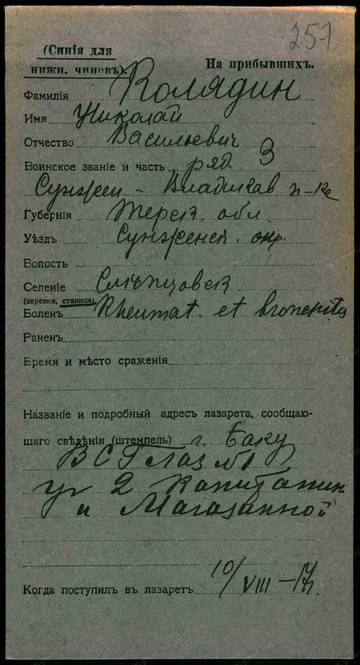 257
(Синія для
нижн. чиновъ).
На прибывшихъ.
Фамилія Колядин
Имя Николай
Отчество Васильевич
Воинское званіе и часть ряд 3
Сунжен - Владикав п-ка
Губернія Терск. обл.
Уѣздъ Сунженск. окр.
Волость
Селеніе Слѣпцовск
(деревня, станица)
Боленъ Rheumat. et bronchitis
Раненъ
Время и мѣсто сраженія
Названіе и подробный адресъ лазарета, сообщаю-
щаго свѣдѣнія (штемпель) г. Баку
В С Г Лаз №1
уг 2 Капитанск
и Магазинной
Когда поступилъ въ лазаретъ 10/VIII-17г.